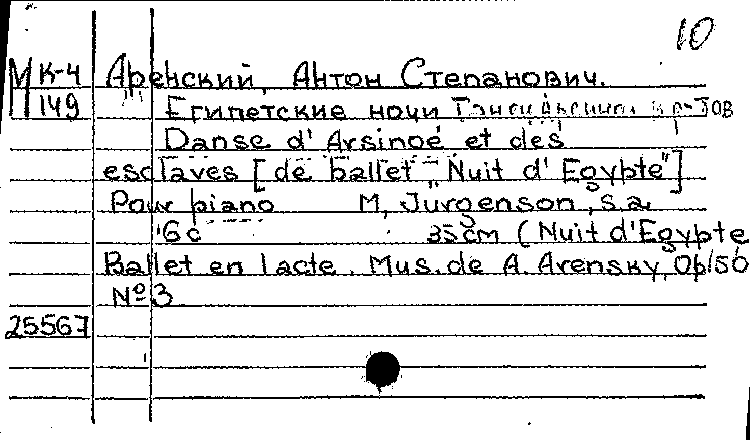 10
М К-4 Аренский, Антон Степанович.
149 Египетские ночи
Danse d'Arsinoé et des
esclaves [de ballet „Nuit d'Egypte"]
Pour piano M, Jurgenson, s.a.
6 c 35 cm (Nuit d'Egypte
Ballet en 1 acte. Mus. de A. Arensky, Op. 50
Nº 3
25567